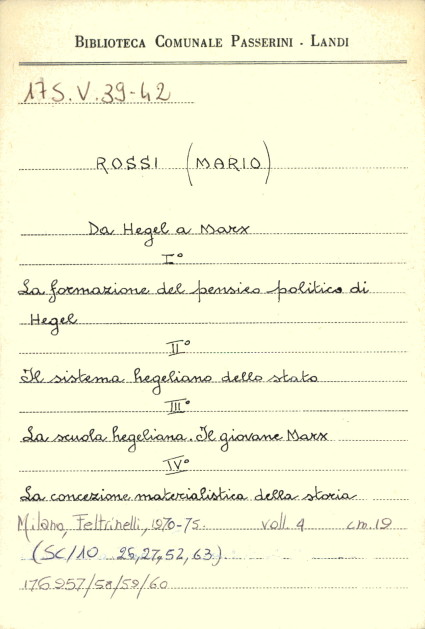 BIBLIOTECA COMUNALE PASSERINI - LANDI
17S.V.39-42
ROSSI (MARIO)
Da Hegel a Marx
I°
La formazione del pensiero politico di
Hegel
II°
Il sistema hegeliano dello stato
III°
La scuola hegeliana. Il giovane Marx
IV°
La concezione materialistica della storia
Milano, Feltrinelli, 1970-75. voll. 4 cm. 19
(SC/10 26,27,52,63)
176957/58/59/60